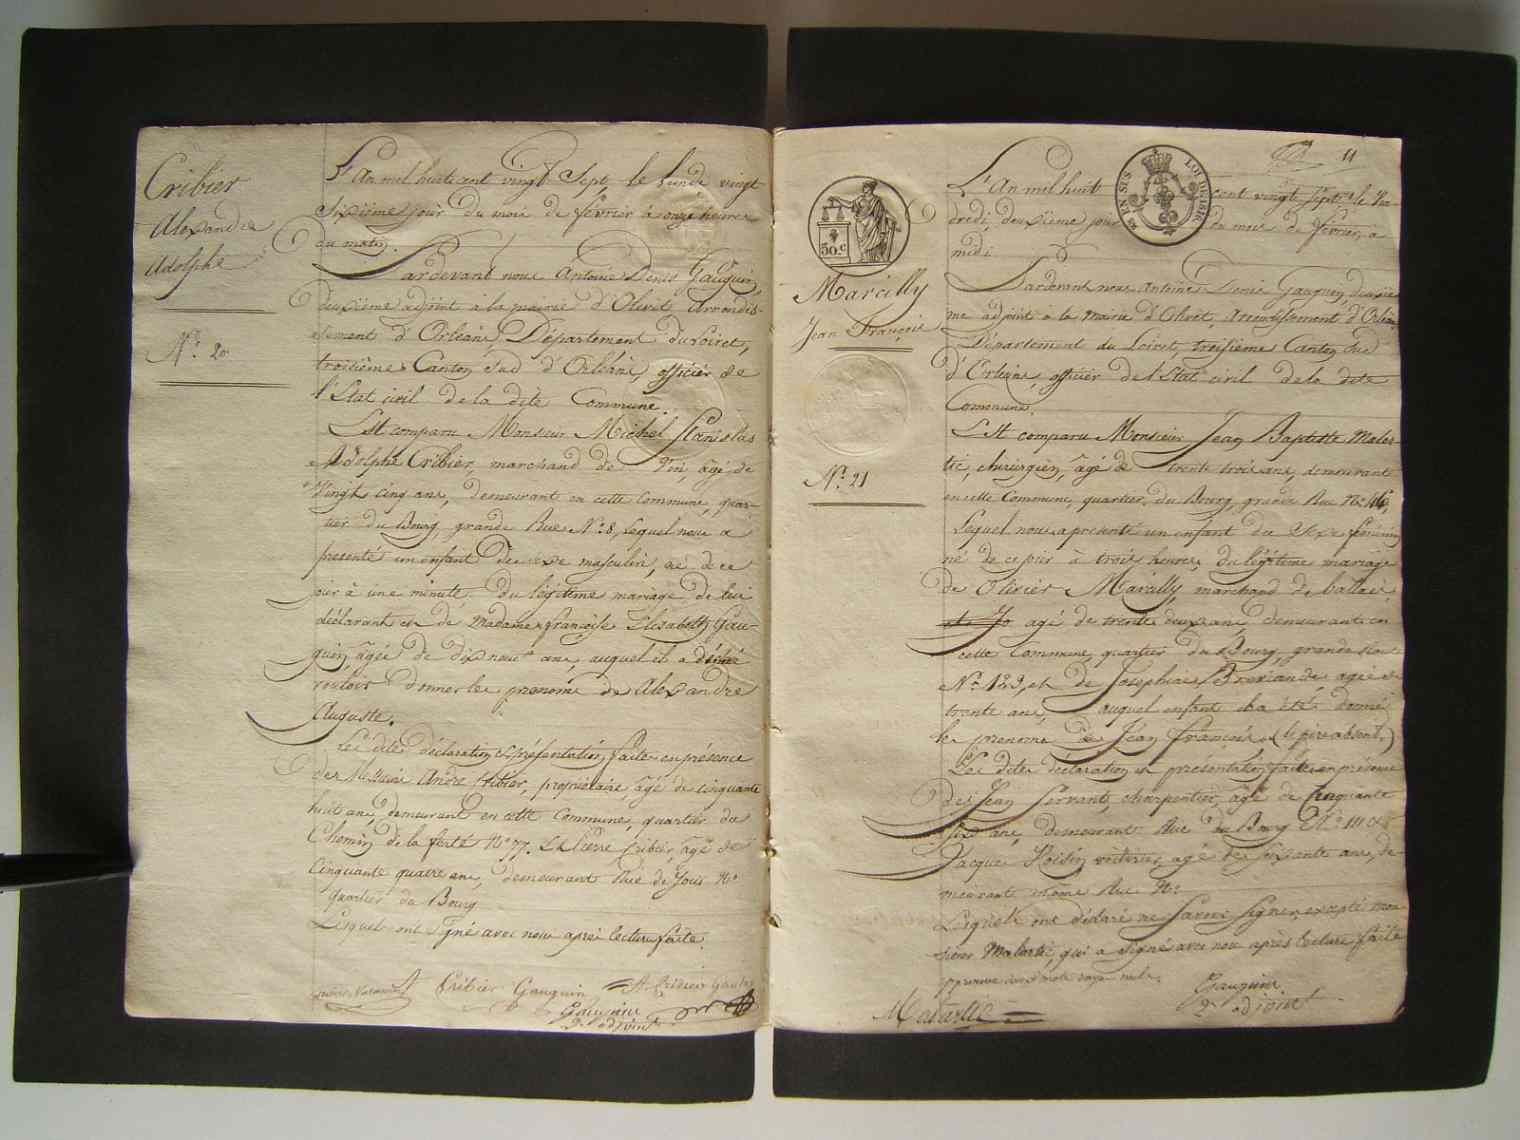 Cribier
Alexandre
Adolphe
N.º 20.
L'An mil huit cent vingt Sept, le Lundi vingt
Sixième jour du mois de février à onze heures
du matin.
Pardevant nous Antoine Denis Gauguin,
deuxième adjoint à la mairie d'Olivet, Arrondis-
sement d'Orléans, Département du Loiret,
troisième Canton Sud d'Orléans, officier de
l'Etat civil de la dite Commune.
Est comparu Monsieur Michel Stanislas
Adolphe Cribier, marchand de Vin, âgé de
Vingt cinq ans, demeurant en cette Commune, quar-
tier du Bourg, grande Rue N.º 8, Lequel nous a
presenté un enfant de sexe masculin, né de ce
jour à une minute du légitime mariage de lui
déclarant et de Madame françoise Elisabeth Gau-
guin, âgée de dix neuf ans, auquel il a déclaré
vouloir donner les prenoms de Alexandre
Auguste.
Les dites déclaration et présentation faites en présence
des André Cribier, propriétaire, âgé de cinquante
huit ans, demeurant en cette Commune, quartier du
Chemin de la ferté N.º 77. Et Pierre Cribier, âgé de
Cinquante quatre ans, demeurant Rue de N.º
quartier du Bourg
Lesquels ont Signé avec nous après lecture faite.
Cribier Gauguin A Cribier
Gauguin
2.e adjoint
11
30.c
EN SUS
LOI DE 1816
Marcilly
Jean François
N.º 21
L'An mil huit cent vingt sept, le Ven-
dredi, deuxième jour du mois de février, à
midi
Pardevant nous Antoine Denis Gauguin, deuxiè-
me adjoint à la Mairie d'Olivet, Arrondissement d'Orléans,
Département du Loiret, troisième Canton Sud
d'Orléans, officier de l'Etat civil de la dite
Commune.
Est comparu Monsieur Jean Baptiste Malar-
tic, chirurgien, âgé de trente trois ans, demeurant
en cette Commune, quartier du Bourg, grande Rue N.º
Lequel nous a presenté un enfant du Sexe féminin
né de ce jour à trois heures, du légitime mariage
de Olivier Marcilly, marchand de ballais,
et Jo agé de trente deux ans, demeurant en
cette Commune, quartier du Bourg, grande Route
N.º 123, et de Josephine agée de
trente ans, auquel enfant il a été donné
les prenoms de Jean François. (le père absent.)
Les dites déclaration et presentation faites en présence
des Jean Servant, charpentier, âgé de Cinquante
Six ans, demeurant Rue du Bourg N.º 111 et
Jacque voiturier, agé de soixante ans, de-
meurant même Rue N.º
Lesquels ont déclaré ne Savoir Signer, excepté mon-
sieur Malartic, qui a signé avec nous après lecture faite
approuvé deux mots rayés nuls.
Malartic
Gauguin
2.e adjoint